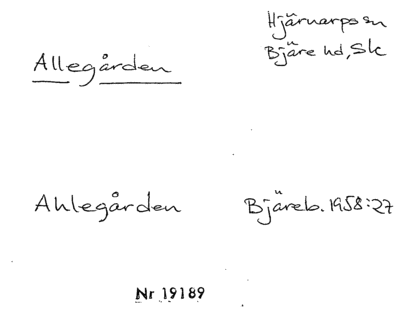 Hjärnarps sn
Allegården Bjäre hd, Sk
Ahlegården Bjäreb. 1958:27
Nr 19189